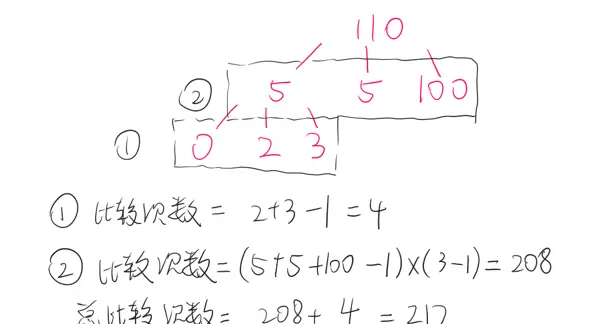 110
② 5 5 100
① 0 2 3
① 比较次数 = 2+3-1=4
② 比较次数=(5+5+100-1)×(3-1)=208
总比较次数= 208+ 4 = 212